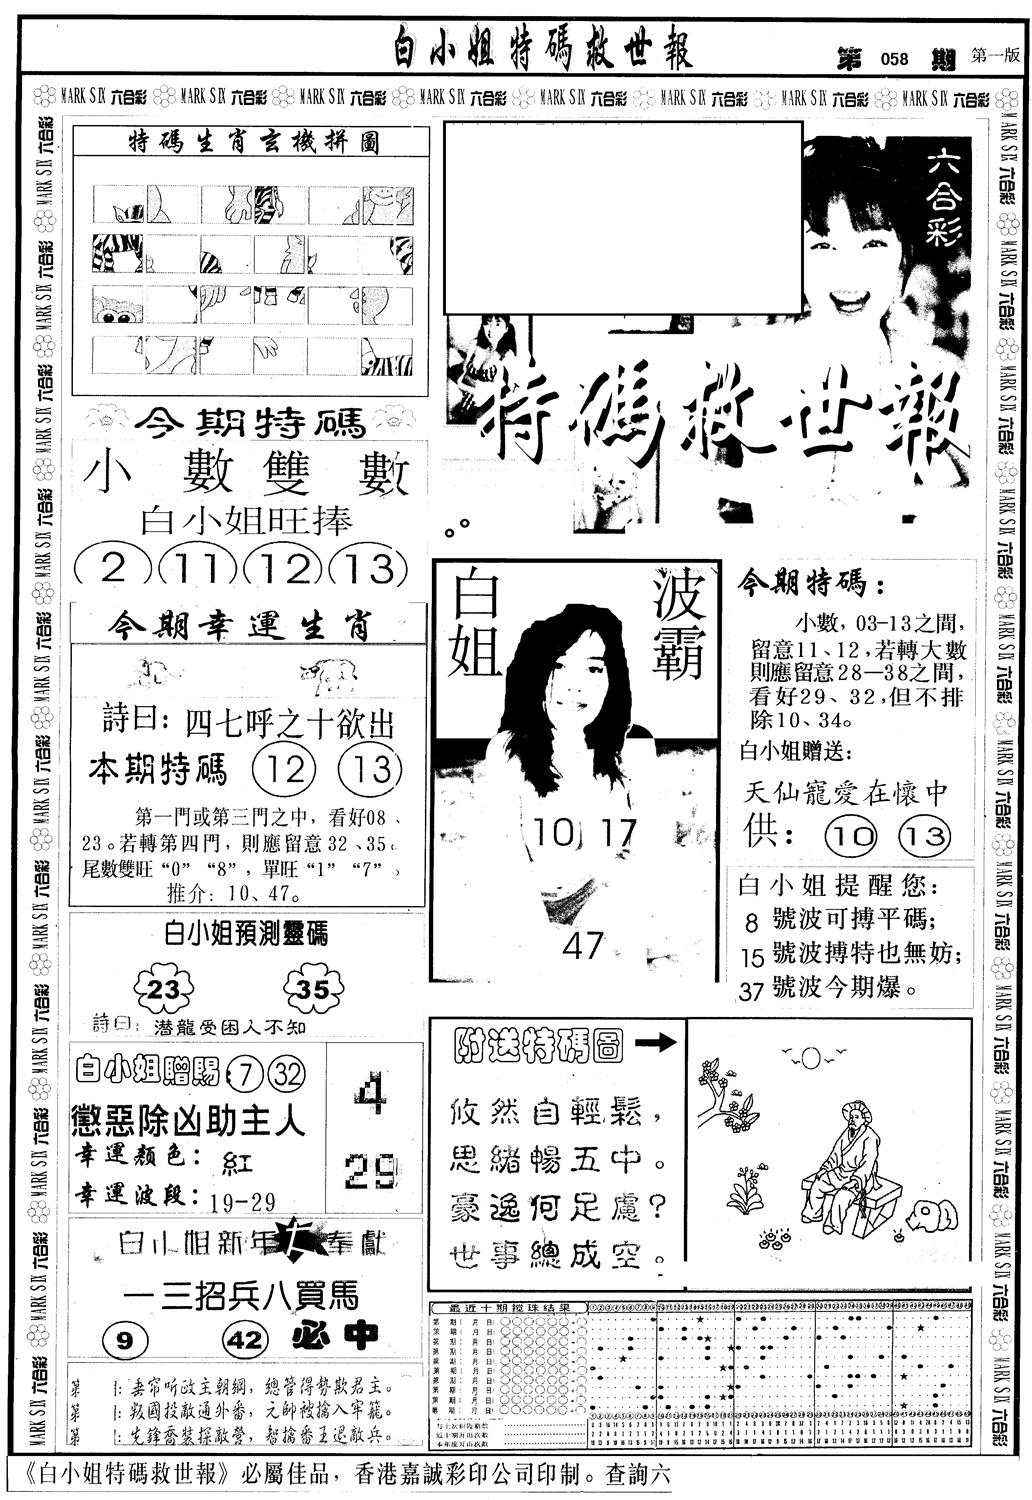 白小姐特碼救世報
第 058 期 第一版
MARK SIX 六合彩 MARK SIX 六合彩 MARK SIX 六合彩 MARK SIX 六合彩 MARK SIX 六合彩 MARK SIX 六合彩 MARK SIX 六合彩 MARK SIX 六合彩
特碼生肖玄機拼圖
今期特碼
小數雙數
白小姐旺捧
2 11 12 13
今期幸運生肖
詩曰：四七呼之十欲出
本期特碼 12 13
第一門或第三門之中，看好08、
23。若轉第四門，則應留意32、35。
尾數雙旺“0”“8”，單旺“1”“7”，
推介：10、47。
白小姐預測靈碼
23 35
詩曰：潛龍受困人不知
白小姐贈賜：7 32
懲惡除凶助主人
幸運顏色：紅
幸運波段：19-29
4
29
白小姐新年大奉獻
一三招兵八買馬
9 42 必中
第 期：垂帘听政主朝綱，總管得勢欺君主。
第 期：叛國投敵通外番，元帥被擒入牢籠。
第 期：先鋒喬裝探敵營，智擒番王退敵兵。
六合彩
特碼救世報
白姐
波霸
10 17
47
今期特碼：
小數，03-13之間，
留意11、12，若轉大數
則應留意28—38之間，
看好29、32，但不排
除10、34。
白小姐贈送：
天仙寵愛在懷中
供：10 13
白小姐提醒您：
8 號波可搏平碼；
15 號波搏特也無妨；
37 號波今期爆。
附送特碼圖
攸然自輕鬆，
思緒暢五中。
豪逸何足慮？
世事總成空。
最近十期攪珠結果
《白小姐特碼救世報》必屬佳品，香港嘉誠彩印公司印制。查詢六